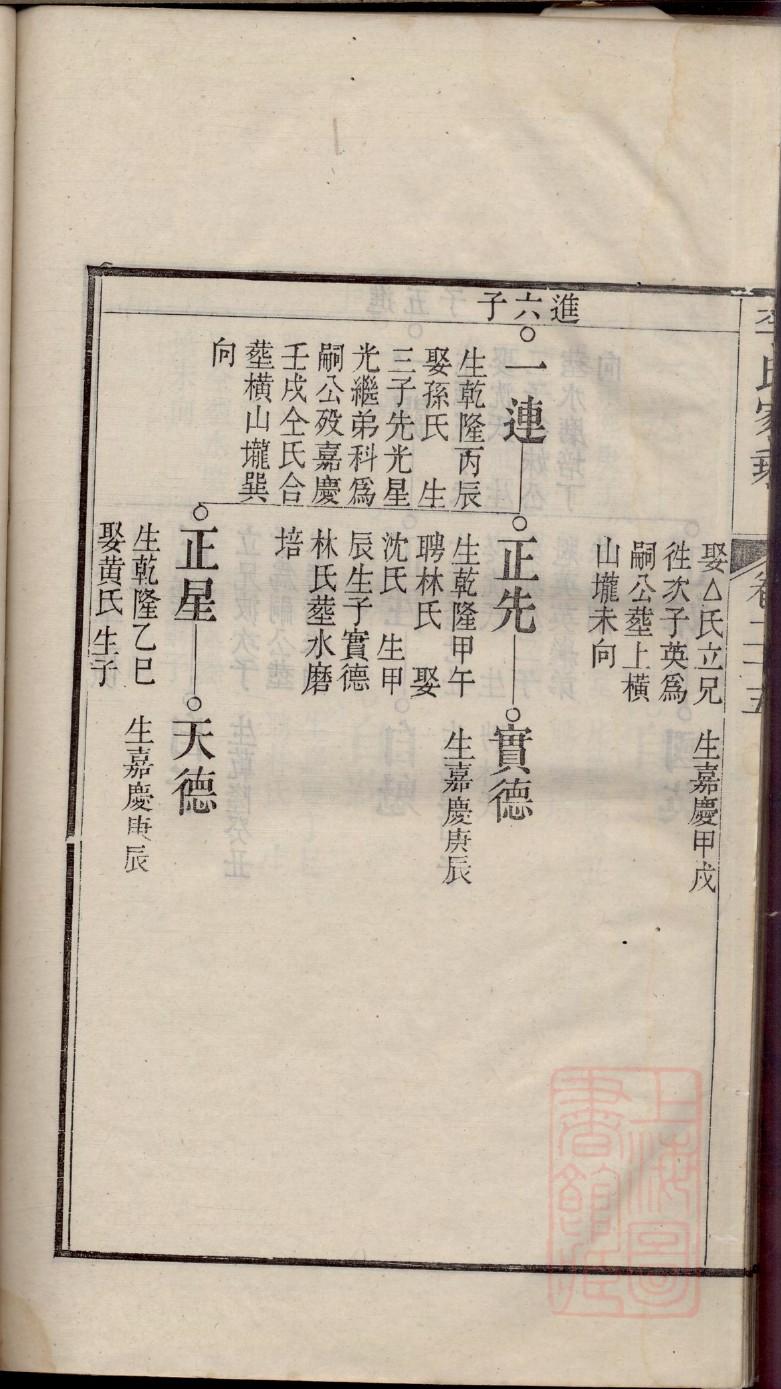 李氏家乘
卷二十五
娶△氏立兄
徃次子英爲
嗣公塟上橫
山壠未向
生嘉慶甲戌
進六子
一連
生乾隆丙辰
娶孫氏 生
三子先光星
光繼弟科爲
嗣公殁嘉慶
壬戌仝氏合
塟橫山壠巽
向
正先
生乾隆甲午
聘林氏 娶
沈氏 生甲
辰生子實德
林氏塟水磨
培
實德
生嘉慶庚辰
正星
生乾隆乙巳
娶黄氏生子
天德
生嘉慶庚辰
上海圖
書館藏